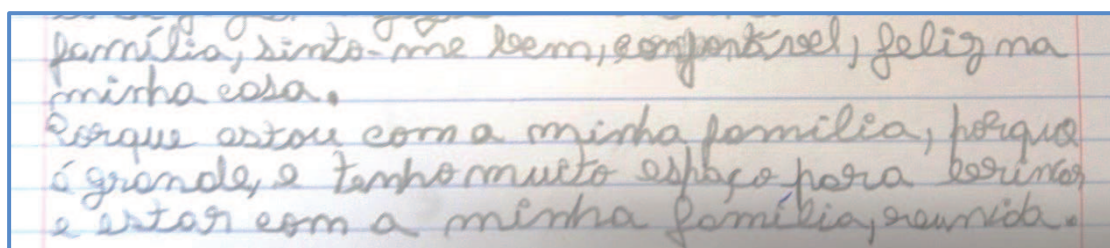 família, sinto-me bem, confortável, feliz na
minha casa.
Porque estou com a minha família, porque
é grande, e tenho muito espaço para brincar
e estar com a minha família, reunida.